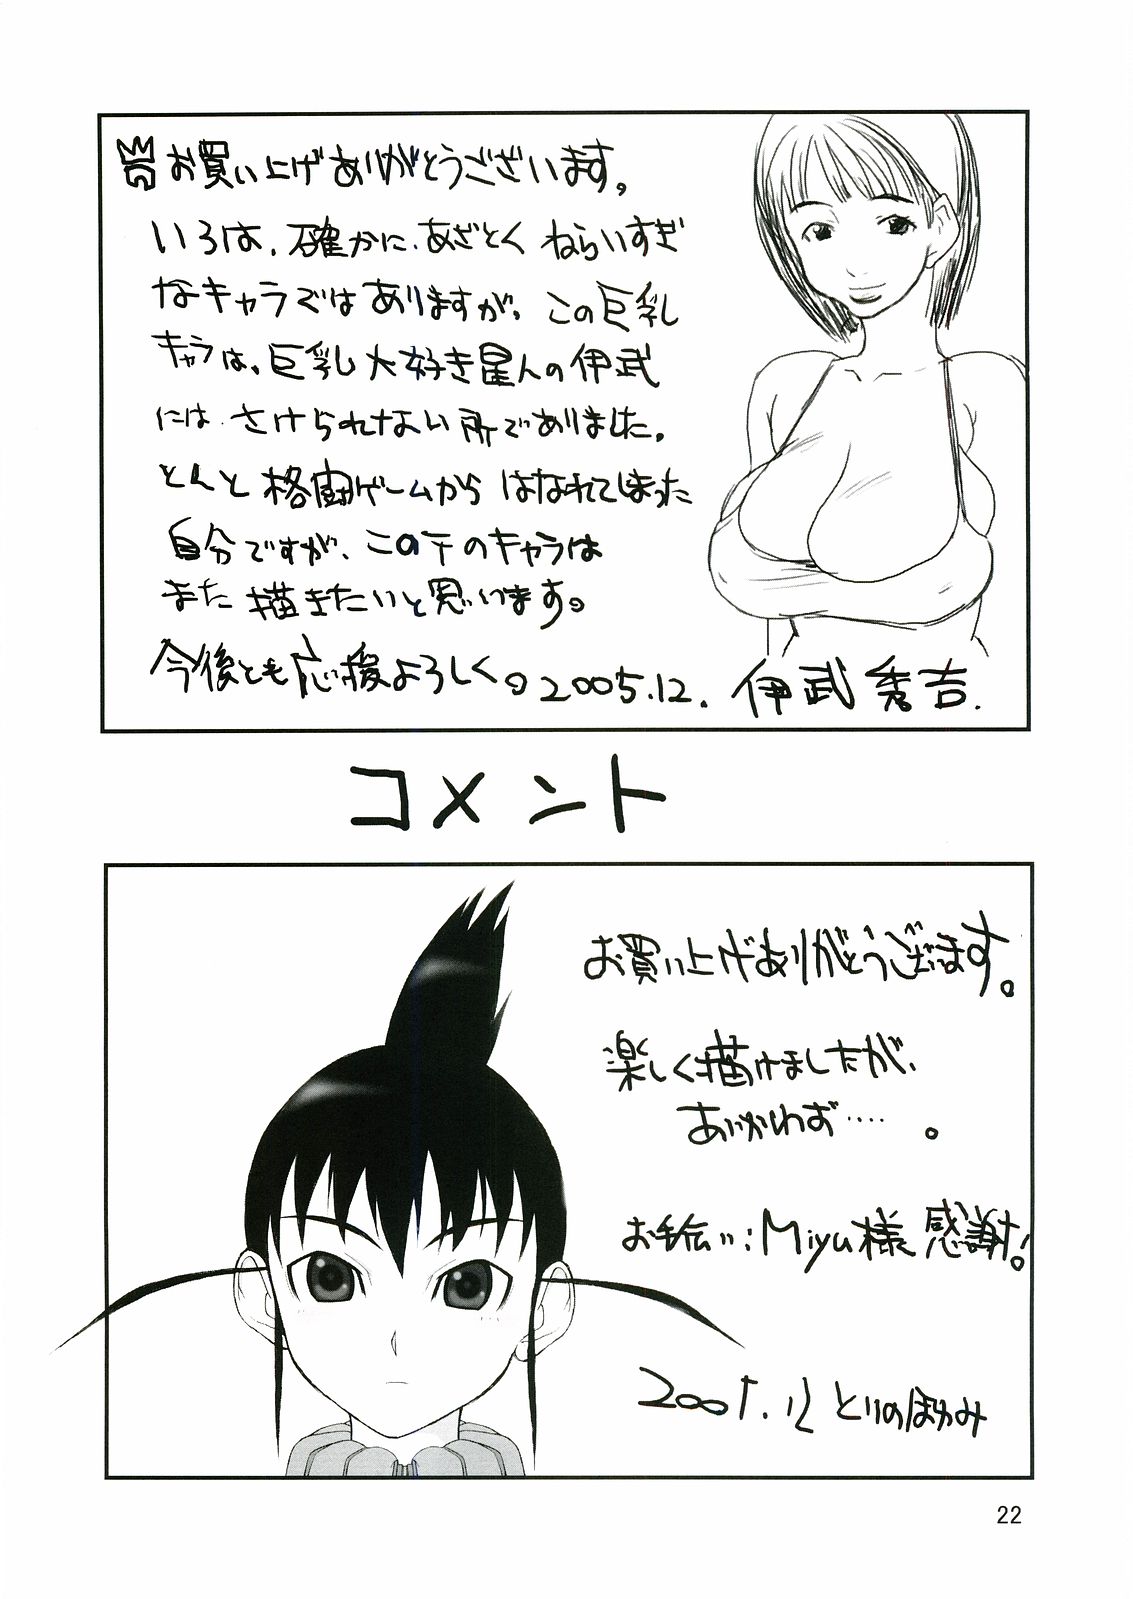 お買い上げありがとうございます。
いろは、確かに、あざとくねらいすぎ
なキャラではありますが、この巨乳
キャラは、巨乳大好き星人の伊武
には、さけられない所でありました。
とんと格闘ゲームからはなれてしまった
自分ですが、このテのキャラは
また描きたいと思います。
今後とも応援よろしく。2005.12. 伊武秀吉.
コメント
お買い上げありがとうございます。
楽しく描けましたが、
あいかわらず‥‥。
お手伝い:Miyu様感謝!
2005.12 とりのほりみ
22